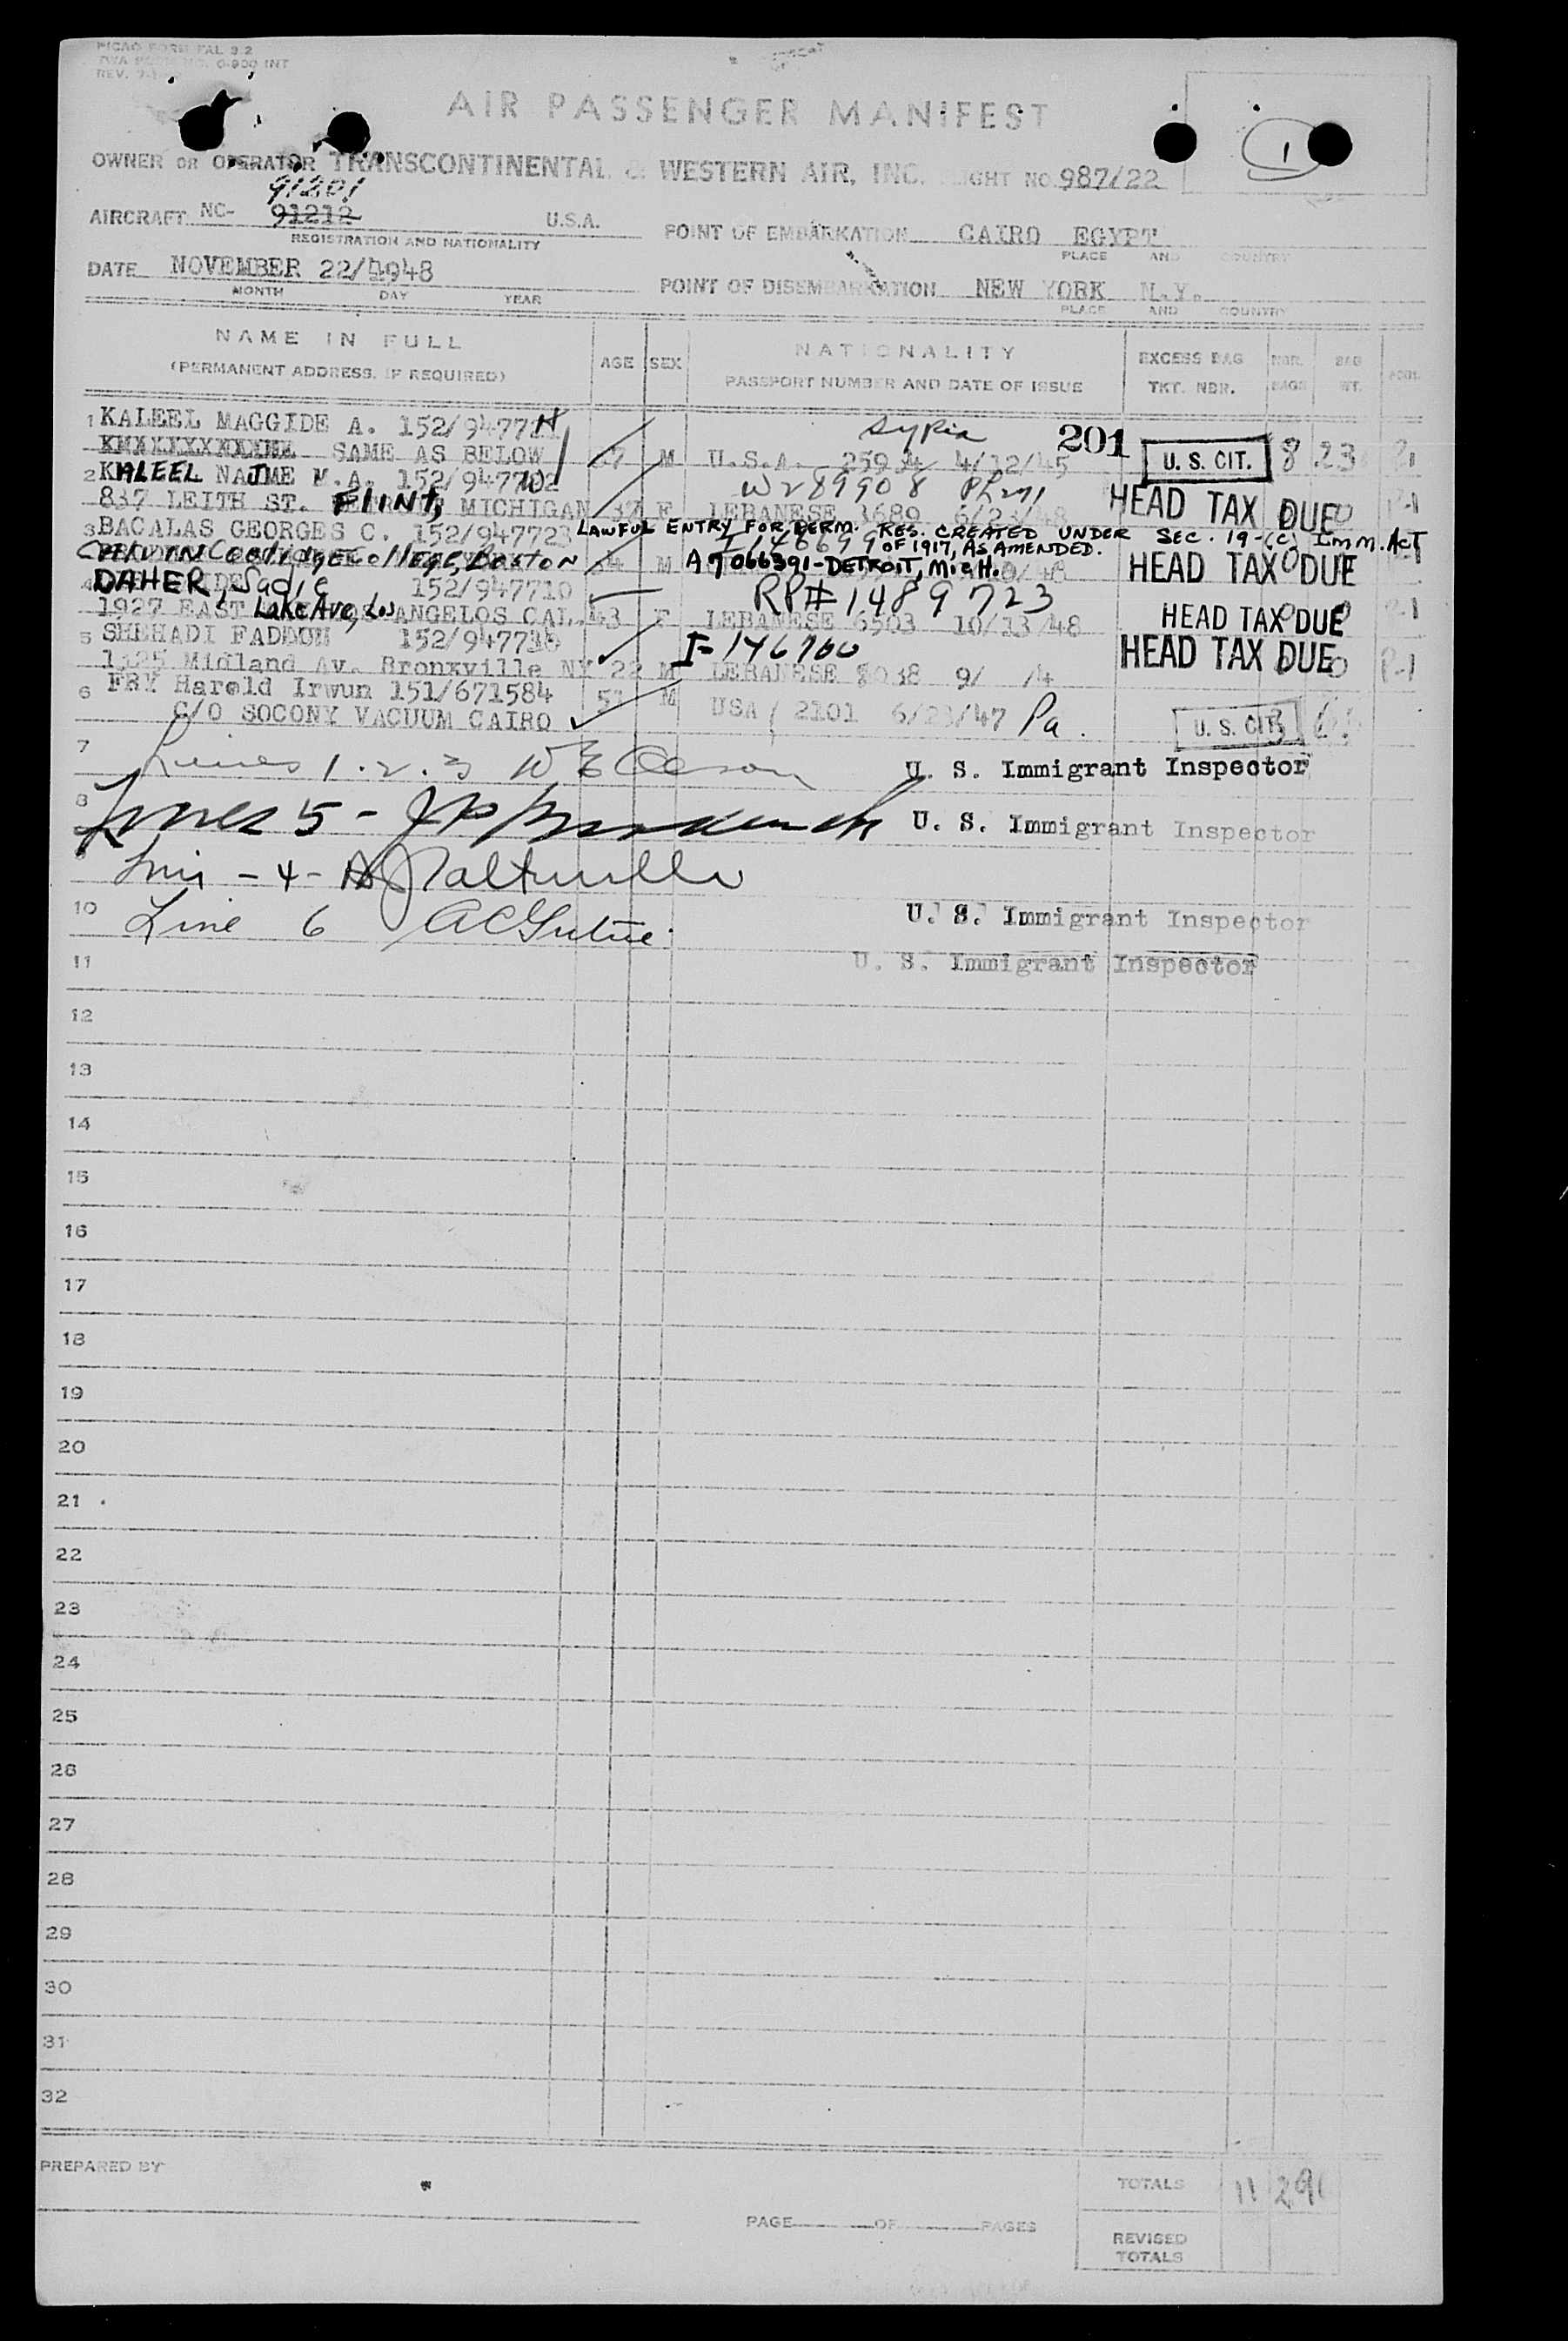 ICAO FORM FAL 3.2
TWA FORM NO. 0-900 INT
REV.
AIR PASSENGER MANIFEST
1
OWNER OR OPERATOR TRANSCONTINENTAL & WESTERN AIR, INC. FLIGHT NO. 987/22
91201
AIRCRAFT NC- 91212 U.S.A.
REGISTRATION AND NATIONALITY
POINT OF EMBARKATION CAIRO EGYPT
PLACE AND COUNTRY
DATE NOVEMBER 22/1948
MONTH DAY YEAR
POINT OF DISEMBARKATION NEW YORK N.Y.
PLACE AND COUNTRY
NAME IN FULL
(PERMANENT ADDRESS, IF REQUIRED)
AGE SEX
NATIONALITY
PASSPORT NUMBER AND DATE OF ISSUE
EXCESS BAG
TKT. NBR.
NBR. BAGS
BAG WT.
1 KALEEL MAGGIDE A. 152/94772 Syria
SAME AS BELOW M U.S.A. 4/12/45 201 U. S. CIT. 8 23
2 KALEEL NAJME M.A. 152/947702 Wv 89908
837 LEITH ST. FlINT, MICHIGAN 37 F LEBANESE 3689 6/23/48 HEAD TAX DUE
3 BACALAS GEORGES C. 152/947723 LAWFUL ENTRY FOR PERM. RES. CREATED UNDER SEC. 19-(c) Imm. AcT
OF 1917, AS AMENDED.
Coolidge College, Boston M A7066391-DETROIT, MicH. HEAD TAX DUE
4 DAHER, Sadie 152/947710 RP# 1489723
1927 EAST Lake Ave, Los ANGELOS CAL. 43 F LEBANESE 6503 10/13/48 HEAD TAX DUE
5 SHEHADI FADDOUH 152/947738 I-146700
1325 Midland Av. Bronxville NY 22 M LEBANESE 8038 9/ /4 HEAD TAX DUE
6 FRY Harold Irwun 151/671584
C/O SOCONY VACUUM CAIRO M USA 2101 6/23/47 Pa. U. S. CIT.
7 Lines 1.2.3 U. S. Immigrant Inspector
8 Lines 5 - U. S. Immigrant Inspector
9 Line - 4 -
10 Line 6 U. S. Immigrant Inspector
11 U. S. Immigrant Inspector
12
13
14
15
16
17
18
19
20
21
22
23
24
25
26
27
28
29
30
31
32
PREPARED BY
TOTALS 11 291
PAGE OF PAGES
REVISED
TOTALS